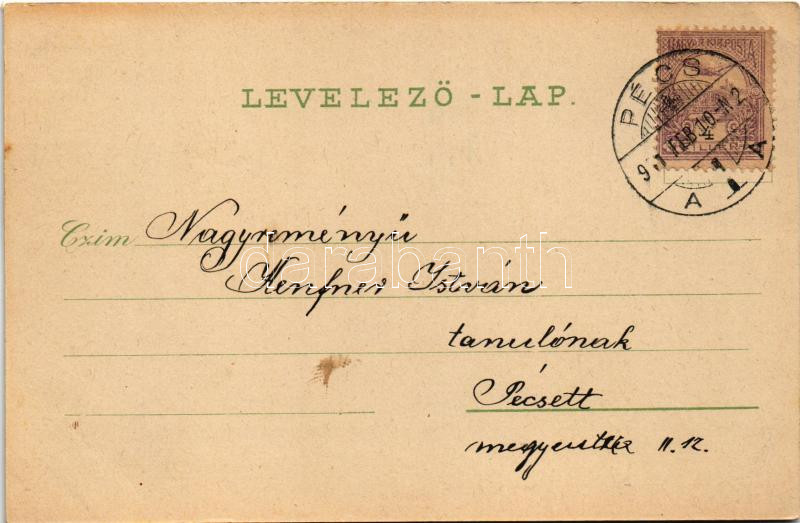 LEVELEZŐ - LAP.
MAGYAR KIR. POSTA
4
FILLÉR
PÉCS
FEB 10
A
Czim Nagyreményü
Kenfner István
tanulónak
Pécsett
II. 12.
darabanth